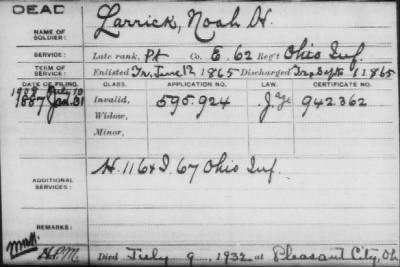 DEAD
NAME OF SOLDIER: Larrick, Noah H.
SERVICE: Late rank, Pt Co. E. 62 Reg't Ohio Inf.
TERM OF SERVICE: Enlisted Tr. June 12, 1865 Discharged Sept 1 1865
DATE OF FILING. CLASS. APPLICATION NO. LAW. CERTIFICATE NO.
July 10
1887 Jan. 31 Invalid, 595.924 942362
Widow,
Minor,
ADDITIONAL SERVICES: H. 116 & I. 67 Ohio Inf.
REMARKS:
Died July 9, 1932 at Pleasant City, Oh